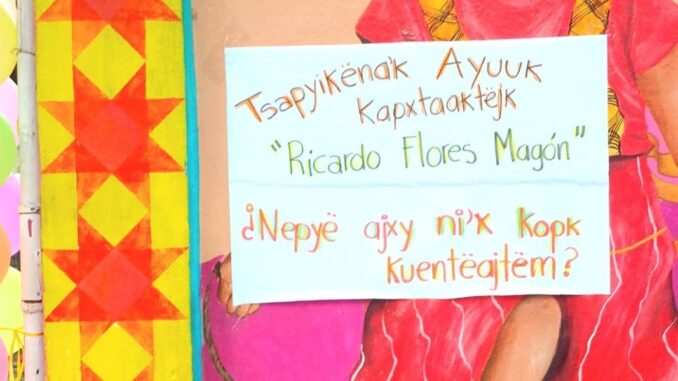 Tsapyikëna'k Ayuuk
Kapxtaaktëjk
"Ricardo Flores Magón"
¿Nepyë ajxy ni'x kopk
kuentëajtëm?